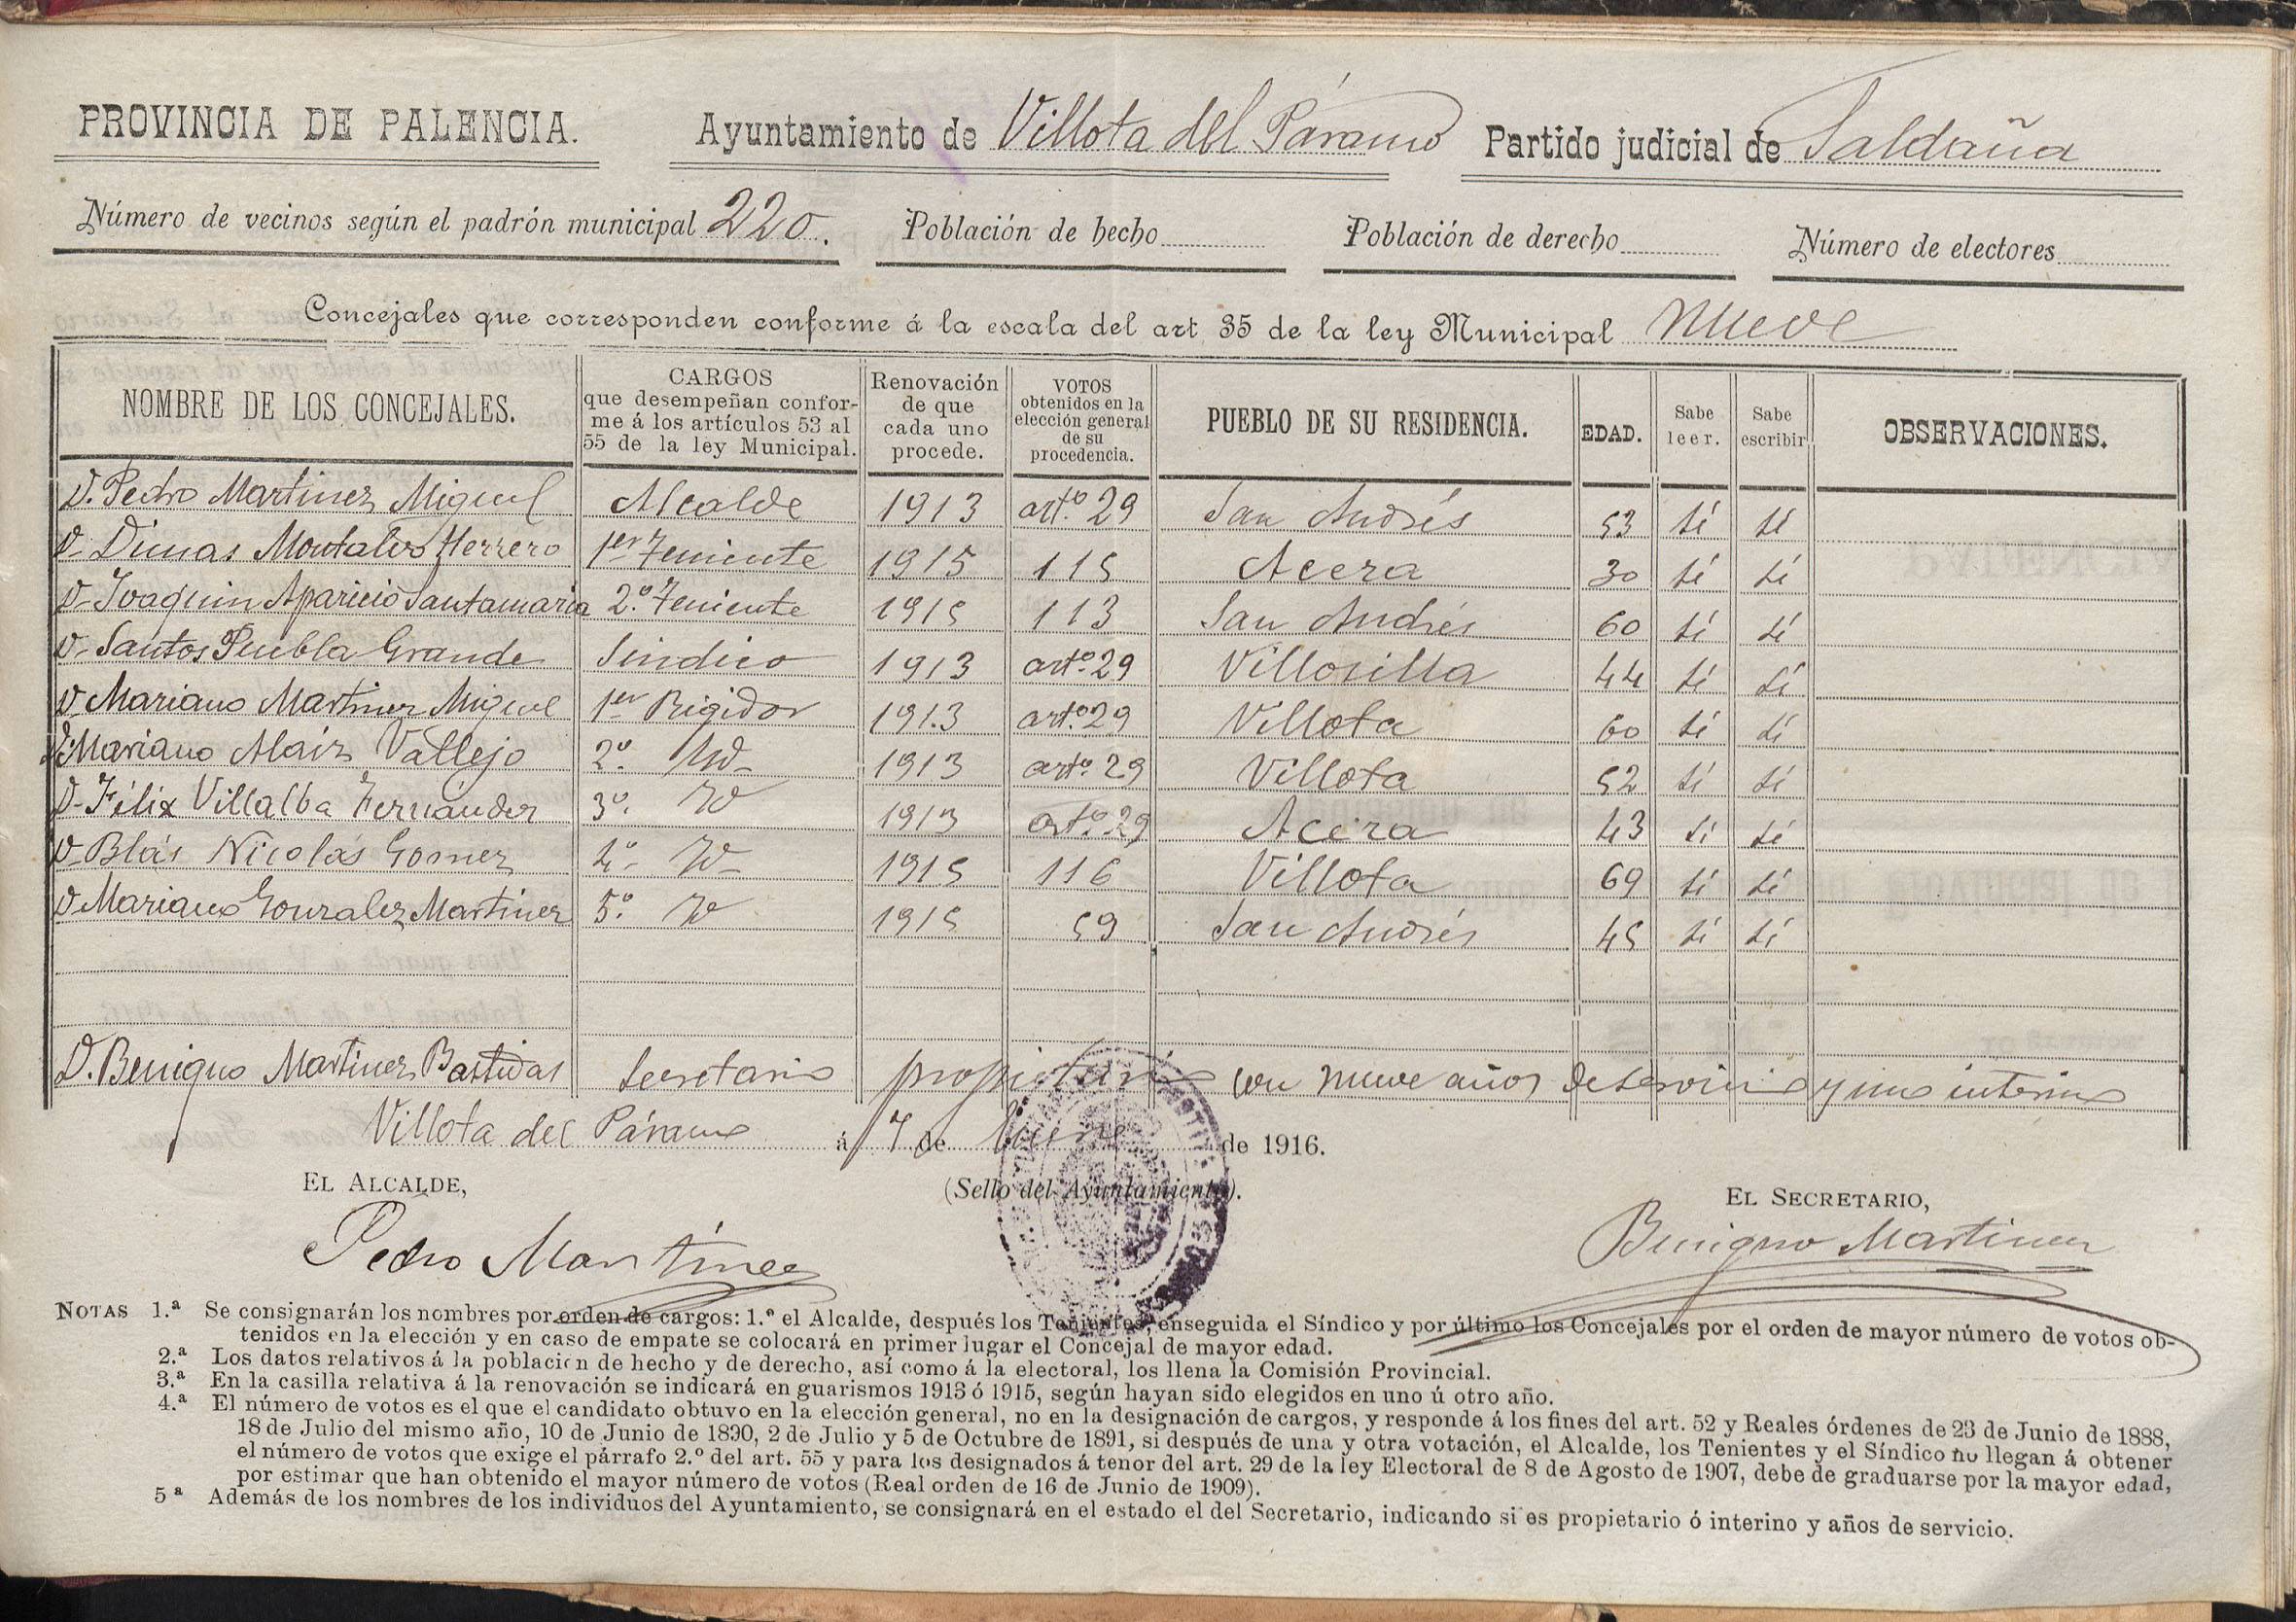 PROVINCIA DE PALENCIA. Ayuntamiento de Villota del Páramo Partido judicial de Saldaña
Número de vecinos según el padrón municipal 220. Población de hecho Población de derecho Número de electores
Concejales que corresponden conforme á la escala del art 35 de la ley Municipal nueve
NOMBRE DE LOS CONCEJALES. CARGOS que desempeñan confor-me á los artículos 53 al 55 de la ley Municipal. Renovación de que cada uno procede. VOTOS obtenidos en la elección general de su procedencia. PUEBLO DE SU RESIDENCIA. EDAD. Sabe leer. Sabe escribir OBSERVACIONES.
D. Pedro Martinez Miguel Alcalde 1913 artº. 29 San Andrés 53 sí sí
D. Dimas Montalvo Herrero 1er Teniente 1915 115 Acera 30 sí sí
D. Joaquin Aparicio Santamaria 2.º Teniente 1915 113 San Andrés 60 sí sí
D. Santos Puebla Grande Sindico 1913 artº. 29 Villosilla 44 sí sí
D. Mariano Martinez Miguel 1er Rigidor 1913 artº. 29 Villota 60 sí sí
D. Mariano Maiz Vallejo 2.º Id. 1913 artº. 29 Villota 52 sí sí
D. Félix Villalba Fernández 3º. Id 1913 artº. 29 Acera 43 sí sí
D. Blás Nicolás Gomez 4º. Id. 1915 116 Villota 69 sí sí
D. Mariano Gonzalez Martinez 5º. Id 1915 59 San Andrés 45 sí sí
D. Benigno Martinez Bastidas Secretario propietario con nueve años de servicio y uno interino
Villota del Páramo á 7 de Enero de 1916.
EL ALCALDE, (Sello del Ayuntamiento). EL SECRETARIO,
Pedro Martinez Benigno Martinez
NOTAS 1.ª Se consignarán los nombres por orden de cargos: 1.º el Alcalde, después los Tenientes, enseguida el Síndico y por último los Concejales por el orden de mayor número de votos ob-
tenidos en la elección y en caso de empate se colocará en primer lugar el Concejal de mayor edad.
2.ª Los datos relativos á la población de hecho y de derecho, así como á la electoral, los llena la Comisión Provincial.
3.ª En la casilla relativa á la renovación se indicará en guarismos 1913 ó 1915, según hayan sido elegidos en uno ú otro año.
4.ª El número de votos es el que el candidato obtuvo en la elección general, no en la designación de cargos, y responde á los fines del art. 52 y Reales órdenes de 23 de Junio de 1888,
18 de Julio del mismo año, 10 de Junio de 1890, 2 de Julio y 5 de Octubre de 1891, si después de una y otra votación, el Alcalde, los Tenientes y el Síndico no llegan á obtener
el número de votos que exige el párrafo 2.º del art. 55 y para los designados á tenor del art. 29 de la ley Electoral de 8 de Agosto de 1907, debe de graduarse por la mayor edad,
por estimar que han obtenido el mayor número de votos (Real orden de 16 de Junio de 1909).
5ª Además de los nombres de los individuos del Ayuntamiento, se consignará en el estado el del Secretario, indicando si es propietario ó interino y años de servicio.